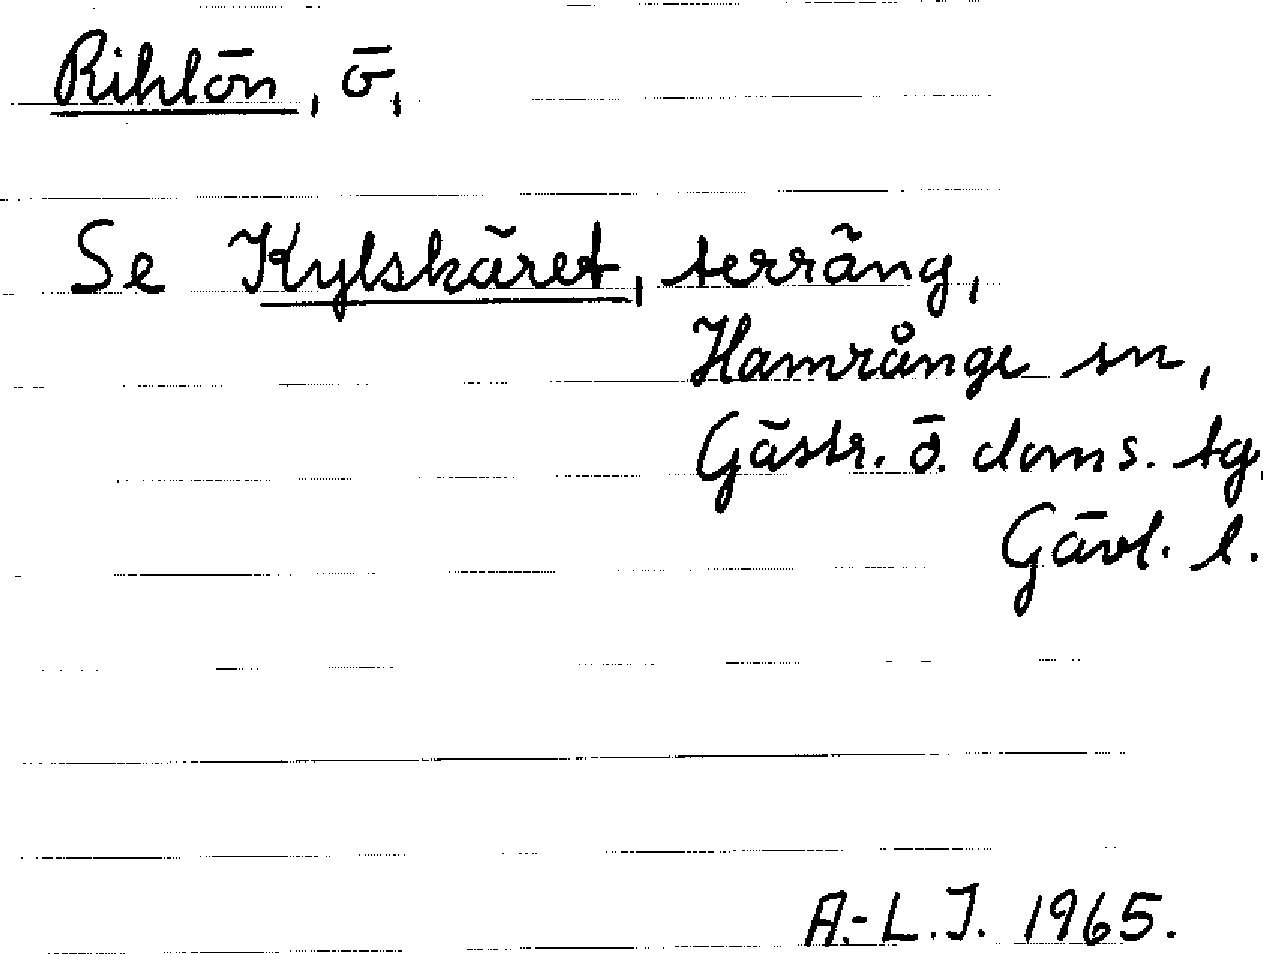 Rihlön, ö,
Se Kylskäret, terräng,
Hamrånge sn,
Gästr. ö. doms. tg.
Gävl. l.
A.-L.J. 1965.